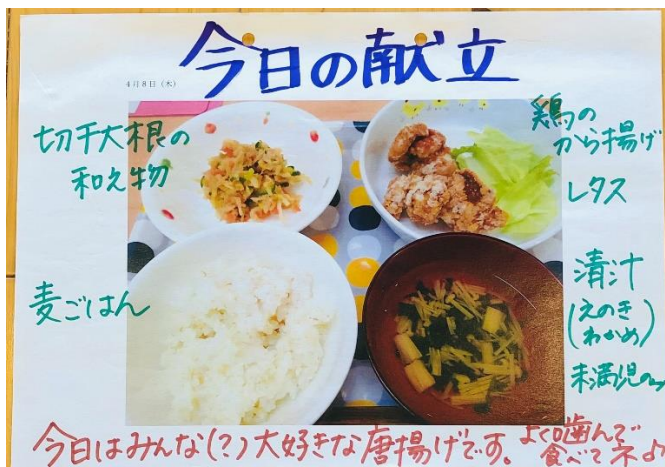 今日の献立
4月8日（木）
切干大根の
和え物
鶏の
から揚げ
レタス
麦ごはん
清汁
(えのき
わかめ)
未満児のみ
今日はみんな(?)大好きな唐揚げです。よく噛んで
食べてネ♪